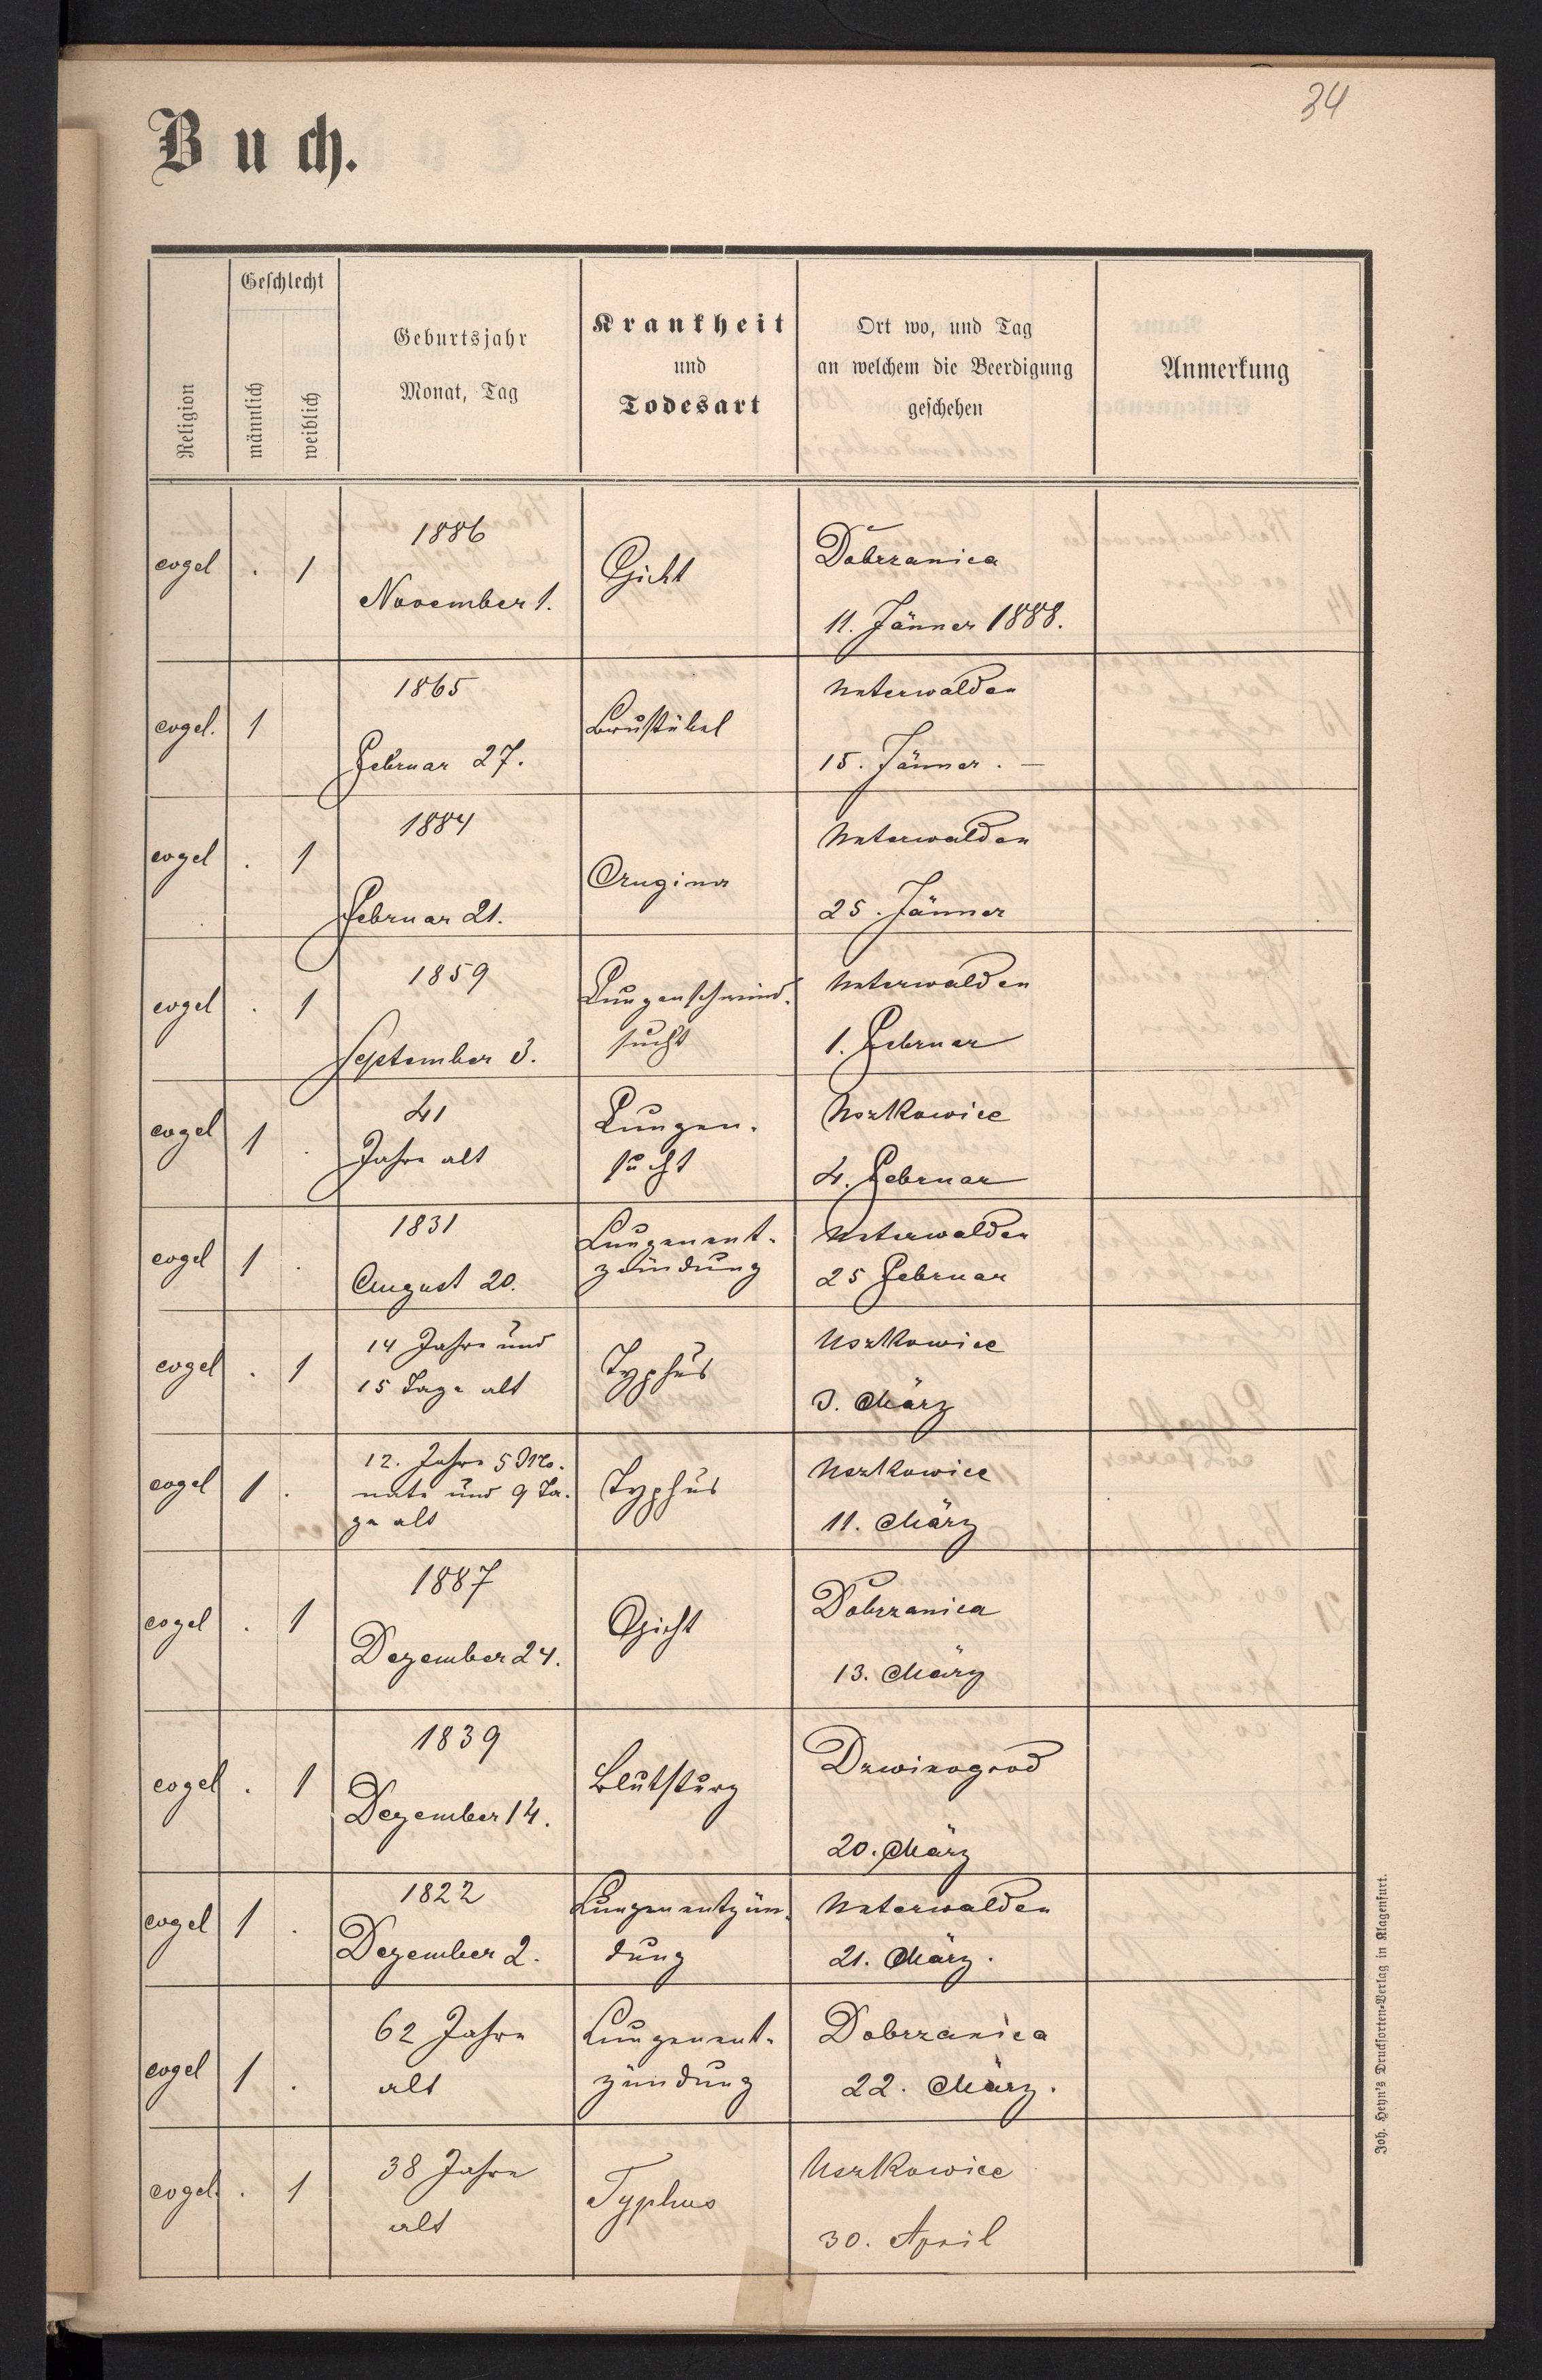 34
Buch.
Religion
Geschlecht
männlich
weiblich
Geburtsjahr
Monat, Tag
Krankheit
und
Todesart
Ort wo, und Tag
an welchem die Beerdigung
geschehen
Anmerkung
evgel . 1
1886
November 1.
Gicht
Dobrzanica
11. Jänner 1888.
evgel. 1
1865
Februar 27.
Brustübel
Unterwalden
15. Jänner. —
evgel . 1
1884
Februar 21.
Unterwalden
25. Jänner
evgel . 1
1859
September 3.
Lungenschwind-
sucht
Unterwalden
1. Februar
evgel 1 .
41
Jahre alt
Lungen-
sucht
Uszkowice
4. Februar
evgel 1 .
1831
August 20.
Lungenent-
zündung
Unterwalden
25 Februar
evgel . 1
14 Jahre und
15 Tage alt
Typhus
Uszkowice
3. März
evgel 1 .
12. Jahre 5 Mo-
nate und 9 Ta-
ge alt
Typhus
Uszkowice
11. März
evgel . 1
1887
Dezember 24.
Gicht
Dobrzanica
13. März
evgel . 1
1839
Dezember 14.
Blutsturz
Dzwinogrod
20. März
evgel 1 .
1822
Dezember 2.
Lungenentzün-
dung
Unterwalden
21. März.
evgel 1 .
62 Jahre
alt
Lungenent-
zündung
Dobrzanica
22. März.
evgel. . 1
38 Jahre
alt
Typhus
Uszkowice
30. April
Joh. Heyn's Drucksorten-Verlag in Klagenfurt.